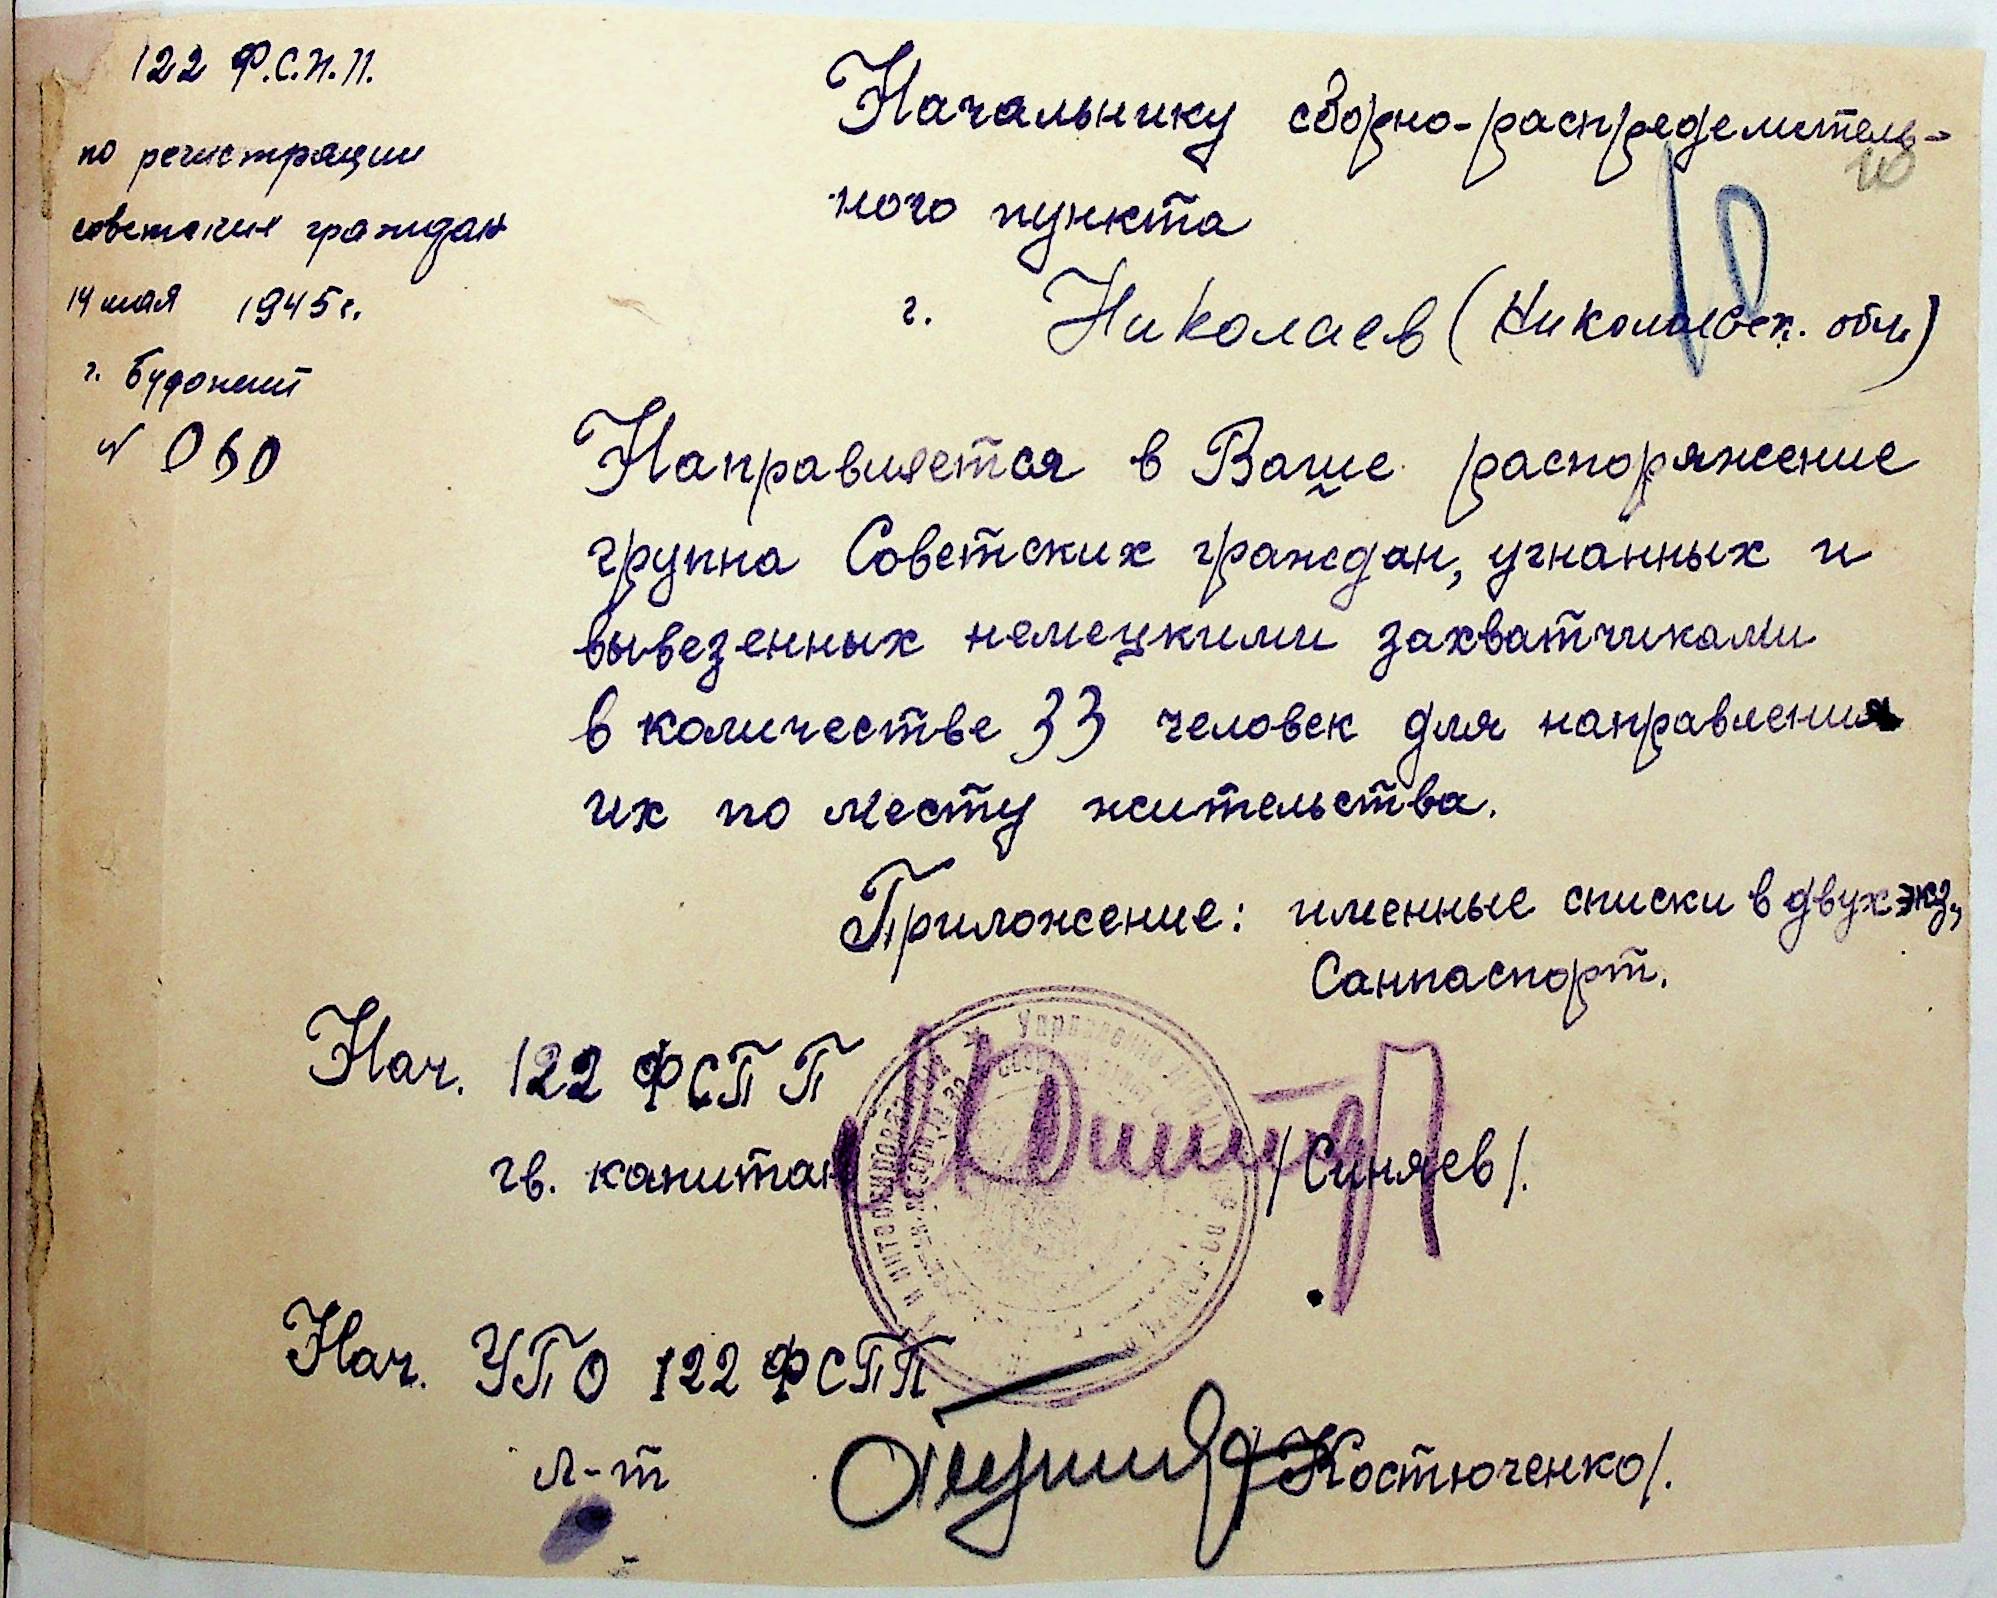 122 Ф.С.П.П.
по регистрации
советских граждан
14 мая 1945 г.
г. Будапешт
№ 060
Начальнику сборно-распределитель-
ного пункта
г. Николаев (Николаевск. обл.)
10
Направляется в Ваше распоряжение
группа Советских граждан, угнанных и
вывезенных немецкими захватчиками
в количестве 33 человек для направления
их по месту жительства.
Приложение: именные списки в двух экз.,
Санпаспорт.
Нач. 122 ФСПП
гв. капитан /Синяев/.
Нач. УПО 122 ФСПП
л-т /Костюченко/.